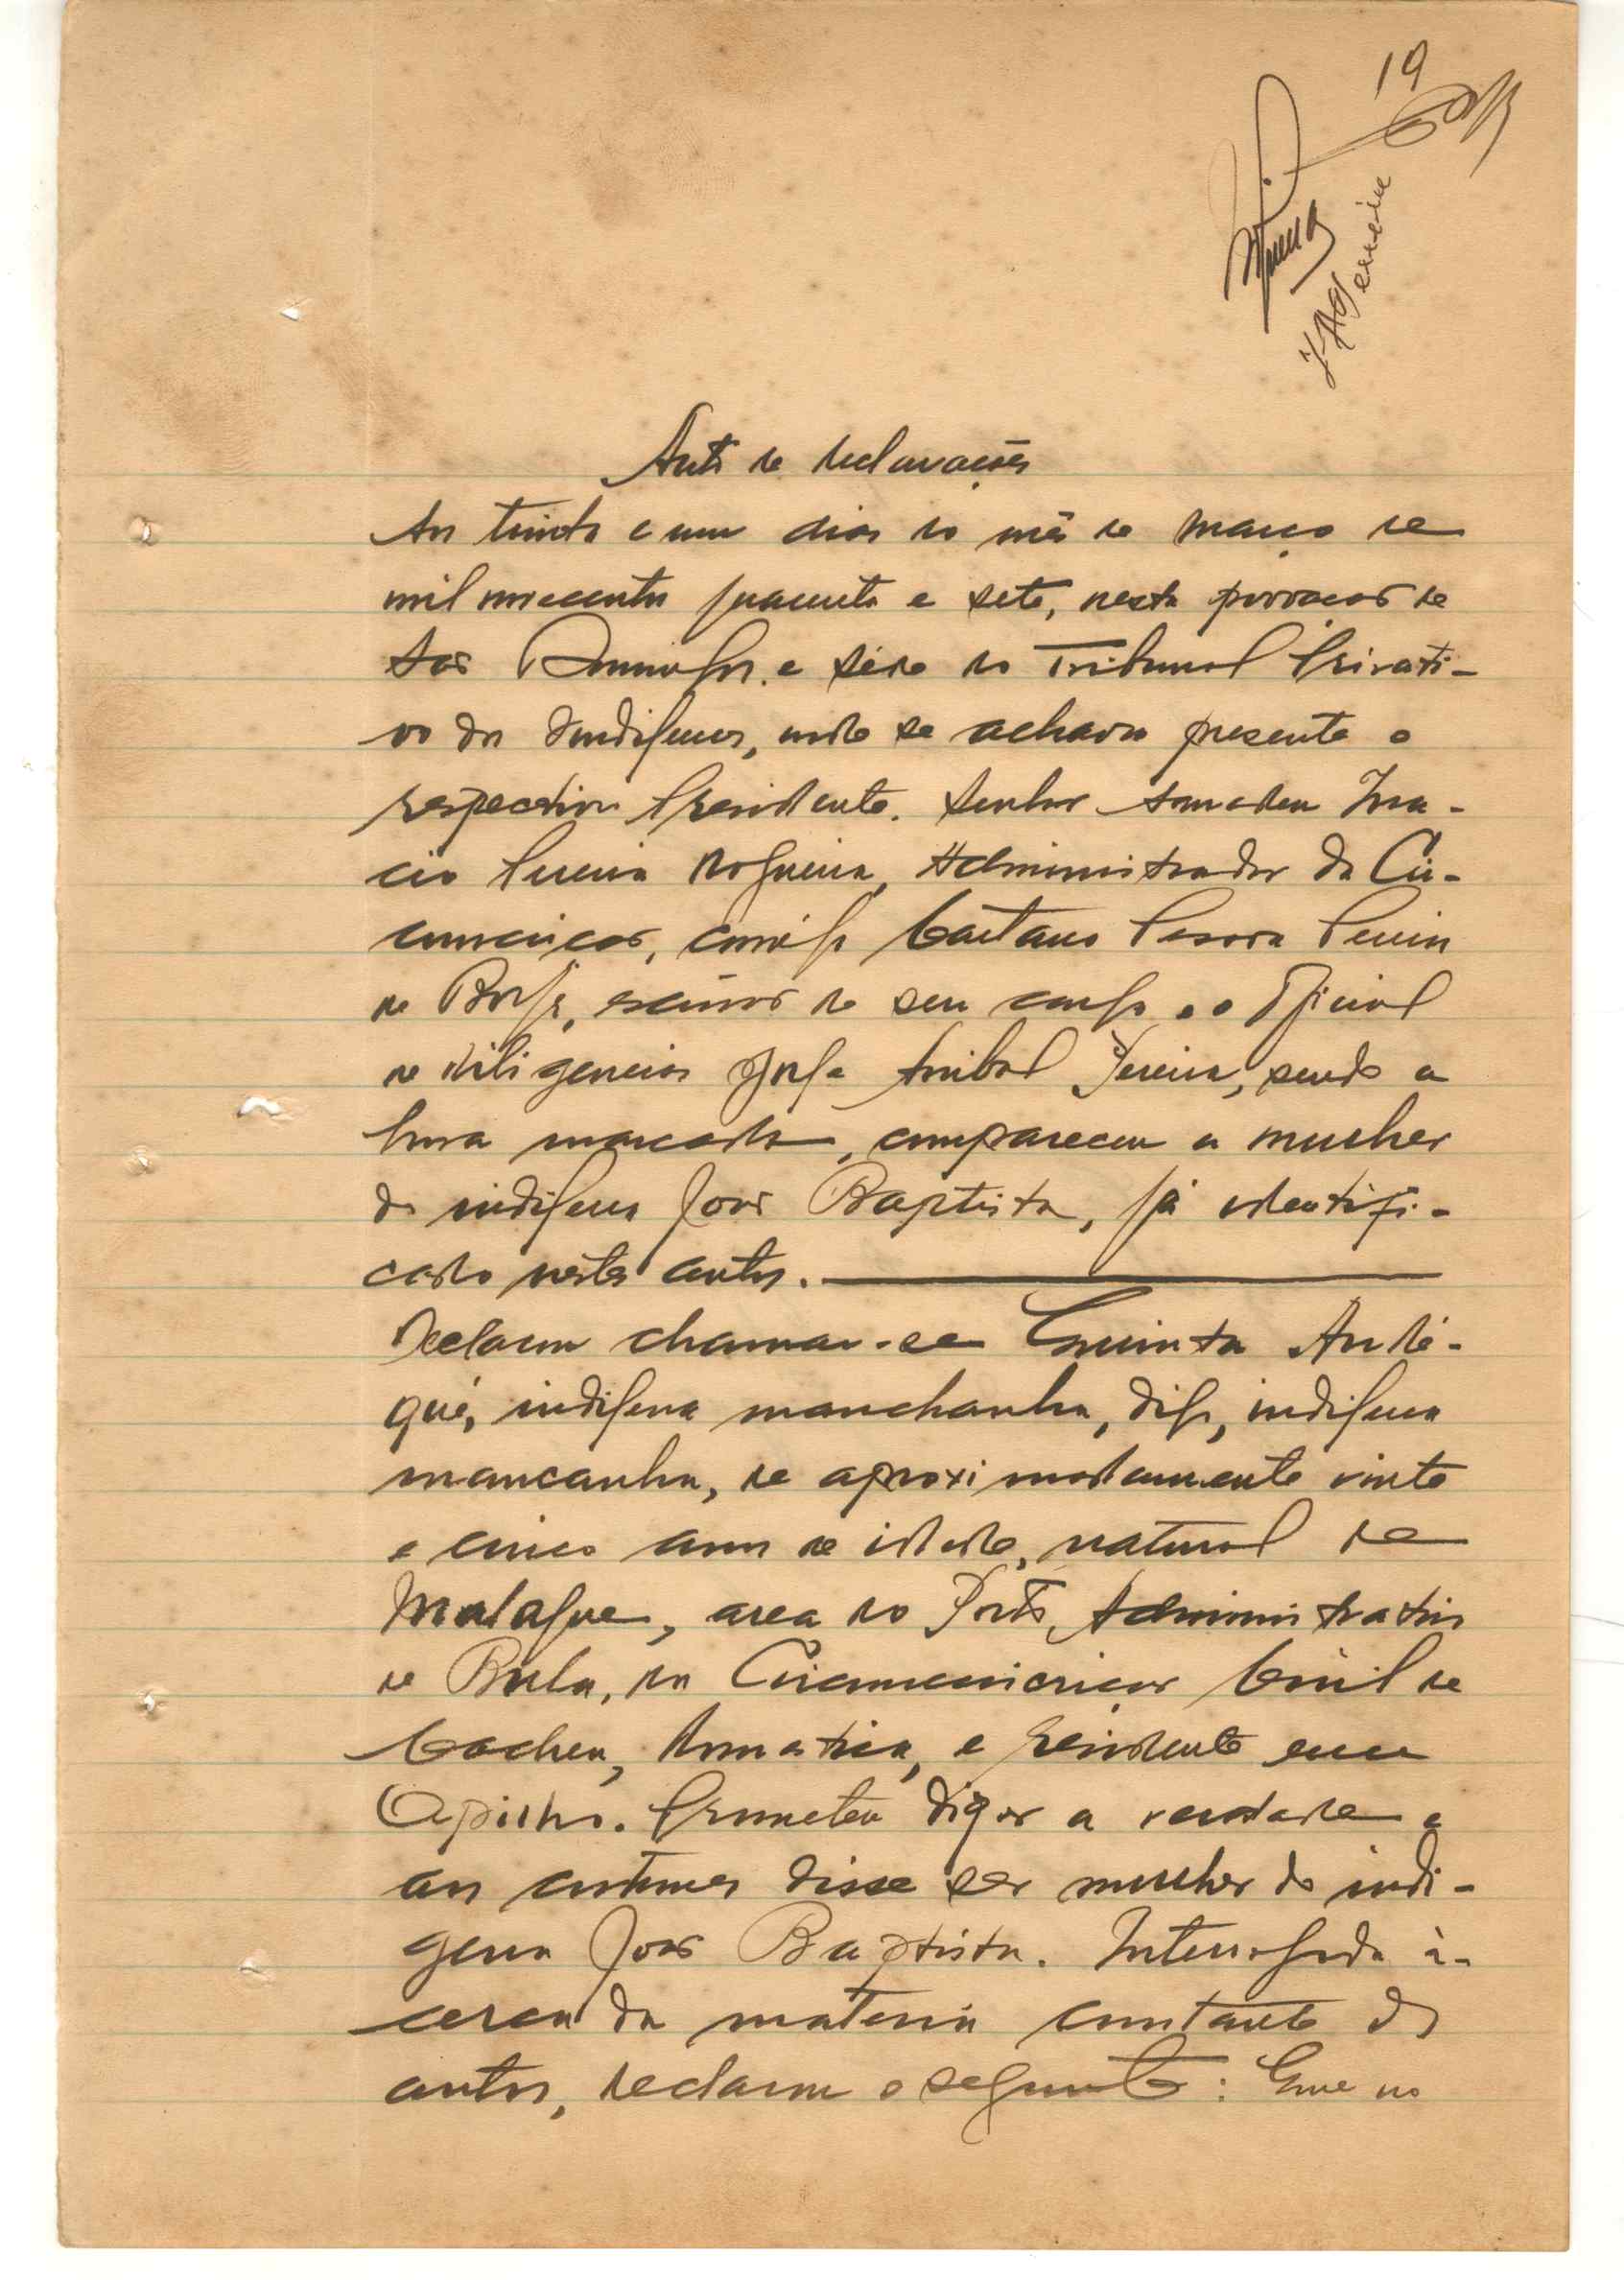 19
JAFerreira
Auto de declarações
Aos trinta e um dias do mês de Março de
mil novecentos quarenta e sete, nesta povoação de
São Domingos e séde do Tribunal Privati-
vo dos Indigenas, onde se achava presente o
respectivo Presidente, Senhor Amadeu Ina-
cio Pereira Nogueira, Administrador da Cir-
cunscrição, comigo Caetano Pereira
de Borja, escrivão do seu cargo e o Oficial
de diligencias Jorge Anibal Ferreira, sendo a
hora marcada, compareceu a mulher
do indigena João Baptista, já identifi-
cado nestes autos.
Declarou chamar-se Quinta André-
qué, indigena manchanha, digo, indigena
mancanha, de aproximadamente vinte
e cinco anos de idade, natural de
Malafue, area do Posto Administrativo
de Bula, da Circunscrição Civil de
Cacheu, domestica, e residente em
Apilho. Prometeu dizer a verdade e
aos costumes disse ser mulher do indi-
gena João Baptista. Interrogada à-
cerca da materia constante dos
autos, declarou o seguinte: Que no